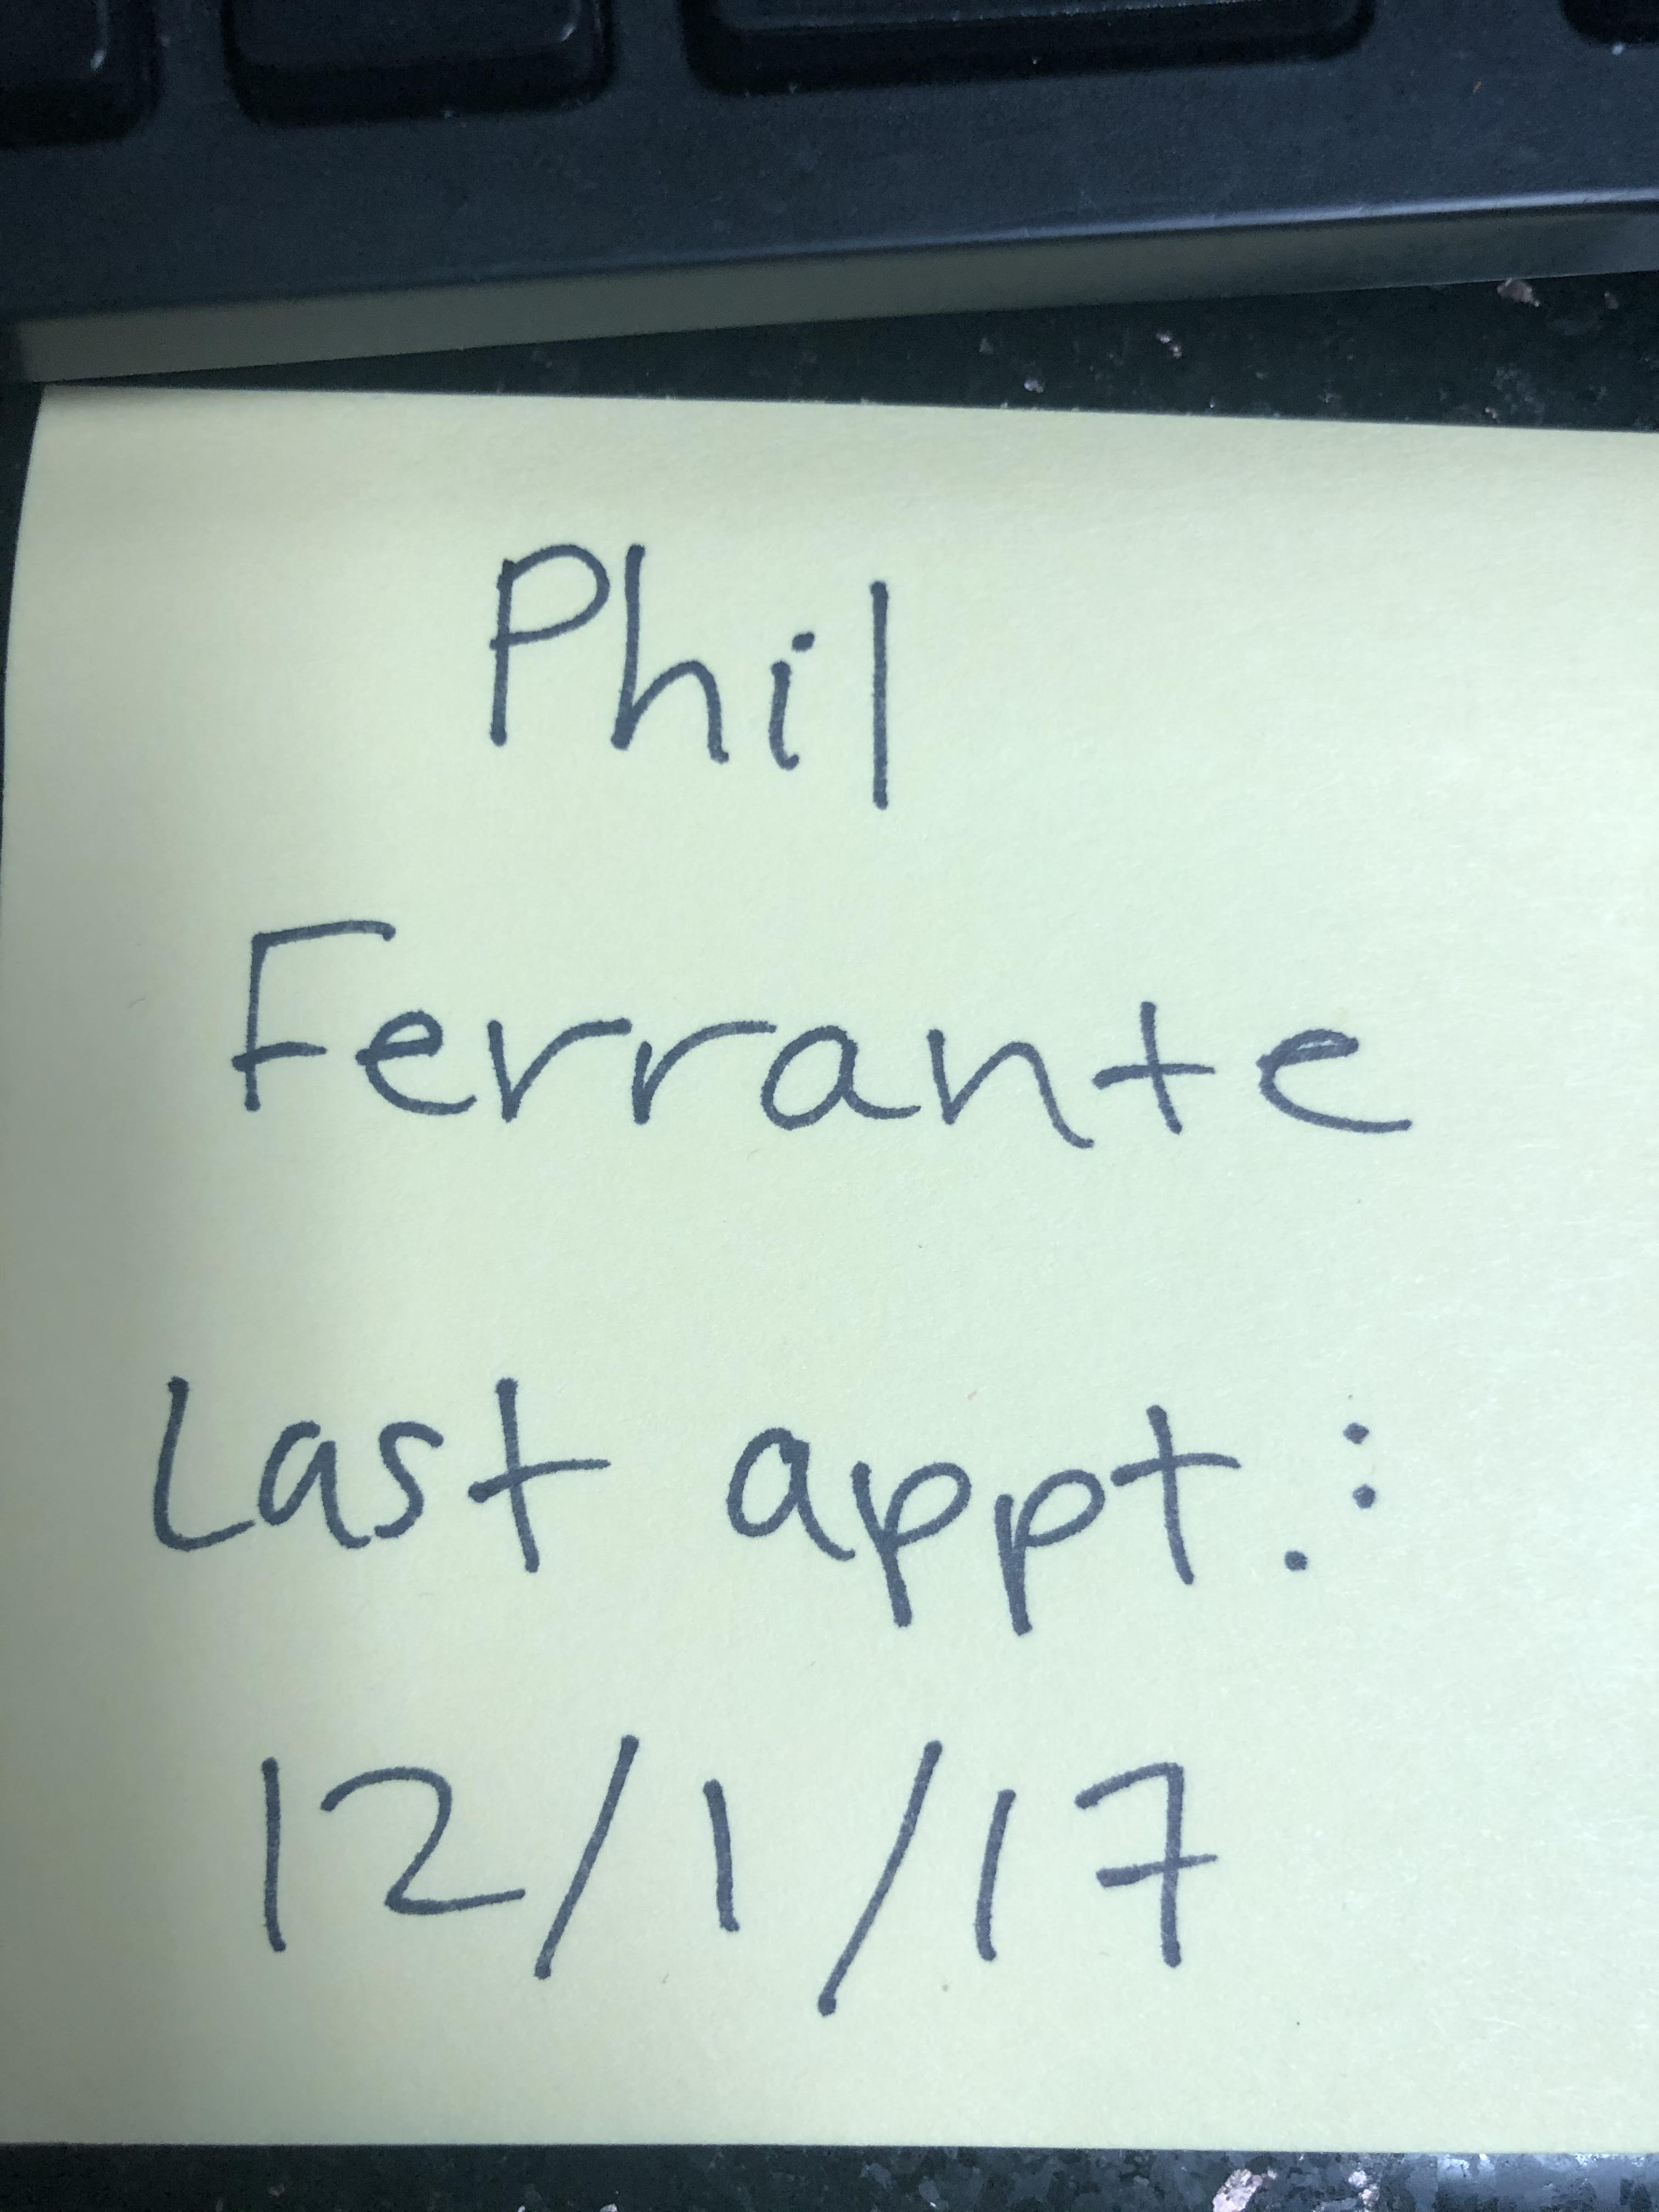 Phil
Ferrante
Last appt.:
12/1/17